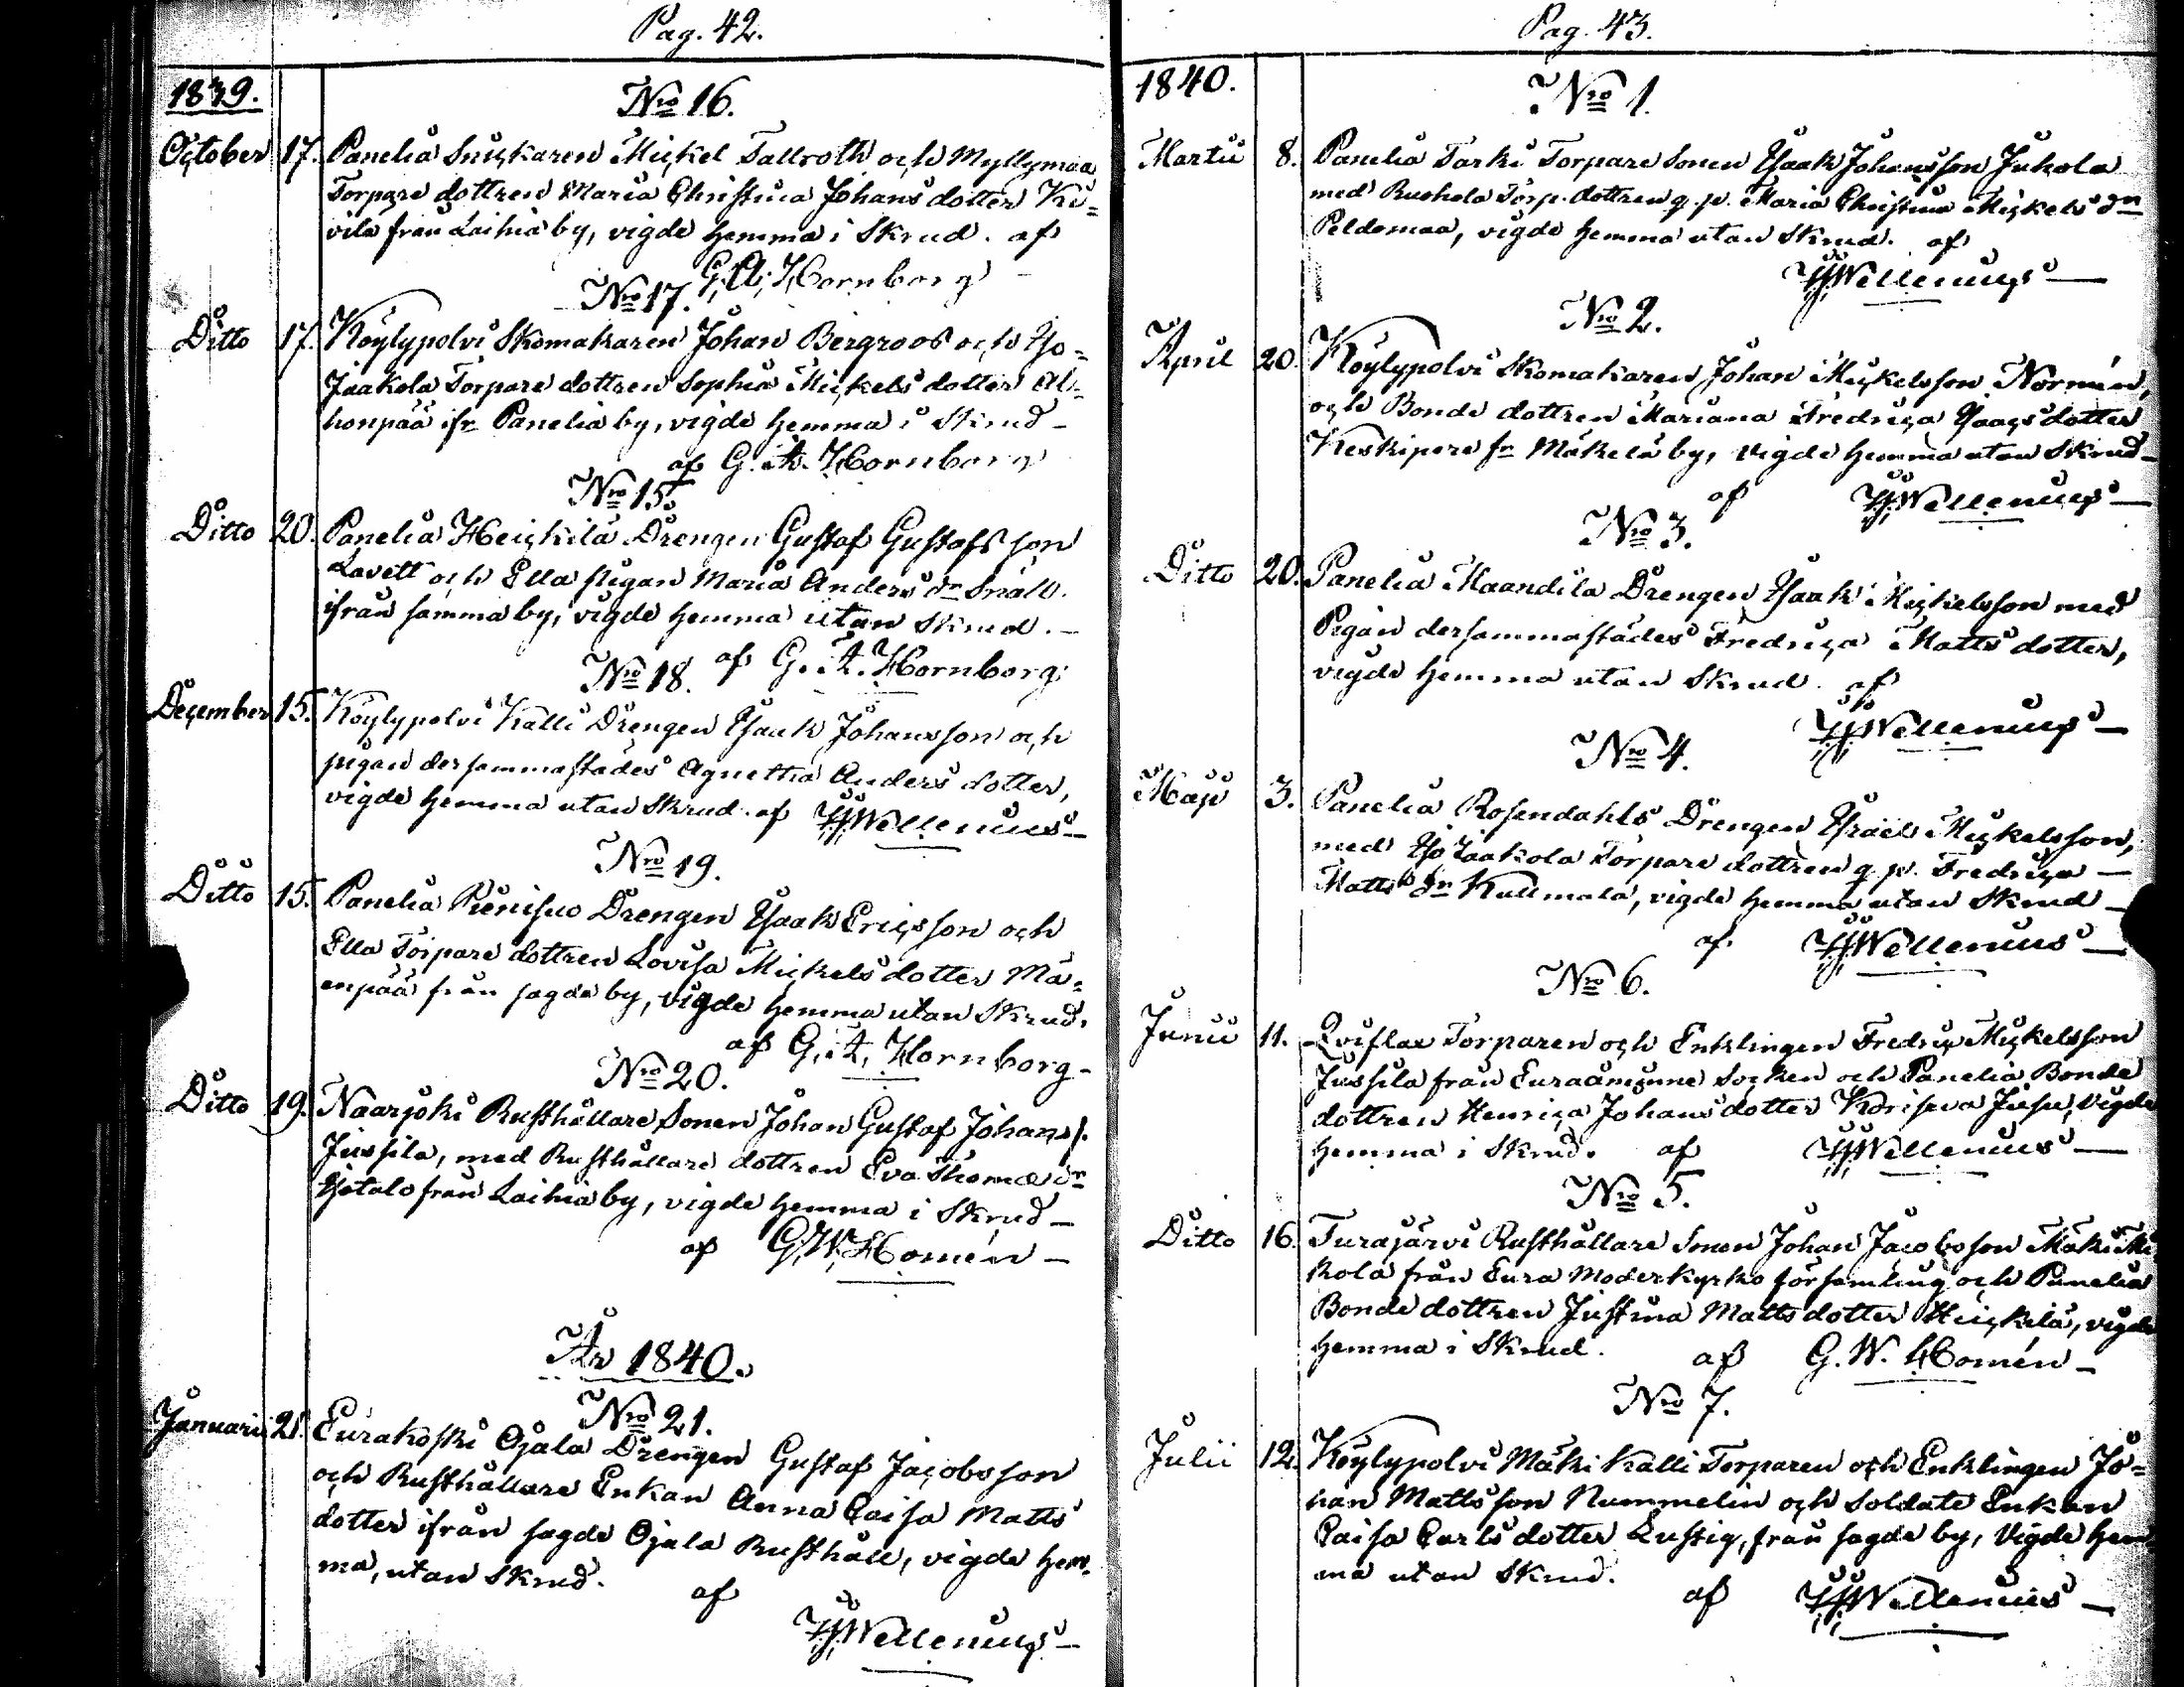 Pag. 42.
1839.
Nro 16.
October 17. Panelia Snickaren Mickel Tallroth och Myllymaa
Torpare dottren Maria Christina Johans dotter Ki=
vilä från Laihia by, vigde hemma i Skrud. af
G. A. Hornborg
Nro 17.
Ditto 17. Köylypolvi Skomakaren Johan Bergroos och Iso=
Jaakola Torpare dottren Sophia Mickels dotter Al-
honpää ifr Panelia by, vigde hemma i Skrud -
af G. A. Hornborg
Nro 15.
Ditto 20. Panelia Heickilä Drengen Gustaf Gustafsson
Lavett och Ella pigan Maria Anders dr Snäll.
ifrån samma by, vigde hemma utan Skrud. -
af G. A. Hornborg
Nro 18.
December 15. Köylypolvi Kalli Drengen Isaak Johansson och
pigan dersammastädes Agnetha Anders dotter,
vigde hemma utan Skrud. af Wellenius -
Nro 19.
Ditto 15. Panelia Drengen Isaak Ericsson och
Ella Torpare dottren Lovisa Mickels dotter Mä=
enpää från sagde by, vigde hemma utan Skrud.
af G. A. Hornborg -
Nro 20.
Ditto 19. Naarjoki Rusthållare Sonen Johan Gustaf Johans s.
Jussila, med Rusthållare dottren Eva Thomæ dr
Isotalo från Laihia by, vigde hemma i Skrud -
af G. W. Homén -
År 1840.
Nro 21.
Januarii 21. Eurakoski Ojala Drengen Gustaf Jacobsson
och Rusthållare Enkan Anna Caisa Matts
dotter ifrån sagde Ojala Rusthåll, vigde hem-
ma, utan Skrud.
af
Wellenius -
Pag. 43.
1840.
Nro 1.
Martii 8. Panelia Tarki Torpare Sonen Isaak Johansson Jukola
med Ruohola Torp. dottren q. p. Maria Christina Mickels dr
Peldomaa, vigde hemma utan Skrud. af
Wellenius -
Nro 2.
April 20. Köylypolvi Skomakaren Johan Mickelsson Normén,
och Bonde dottren Mariana Fredrica Isaacs dotter
Keskipere fr Mäkelä by, vigde hemma utan Skrud -
af Wellenius -
Nro 3.
Ditto 20. Panelia Maandila Drengen Isaak Mickelsson med
Pigan dersammastädes Fredrica Matts dotter,
vigde hemma utan Skrud. af
Wellenius -
Nro 4.
Maji 3. Panelia Rosendahls Drengen Israel Mickelsson,
med Iso Jaakola Torpare dottren q. p. Fredrica -
Matts dr Kullmala, vigde hemma utan Skrud -
af Wellenius -
Nro 6.
Junii 11. Qviflax Torparen och Enklingen Fredric Mickelsson
Jussila från Euraåminne Socken och Panelia Bonde
dottren Henrica Johans dotter Juusu, vigde
hemma i Skrud. af Wellenius -
Nro 5.
Ditto 16. Turajärvi Rusthållare Sonen Johan Jacobsson Mäki Mi
kola från Eura Moderkyrko församling och Panelia
Bonde dottren Justina Matts dotter Heickilä, vigde
hemma i Skrud. af G. W. Homén -
Nro 7.
Julii 12. Köylypolvi Mäki Kalli Torparen och Enklingen Jo=
han Mattsson Nummelin och Soldate Enkan
Caisa Carls dotter Lustig, från sagde by, Vigde hem
ma utan Skrud.
af Wellenius -